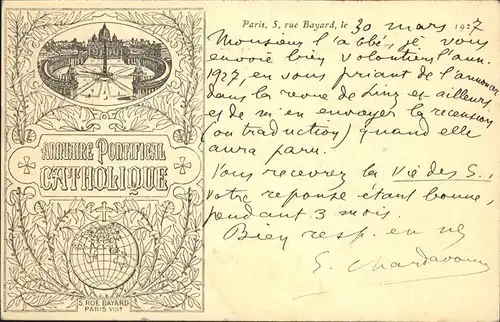 ANNUAIRE PONTIFICAL
CATHOLIQUE
5 RUE BAYARD
PARIS VIIIe
Paris, 5, rue Bayard, le 30 mars 1927
Monsieur l'abbé, je vous
envoie bien volontiers l'ann.
1927, en vous priant de l'annoncer
dans la revue de Linz et ailleurs
et de m'en envoyer la recension
(ou traduction) quand elle
aura paru.
Vous recevrez la Vie des S.,
votre réponse étant bonne,
pendant 3 mois.
Bien resp. en
E. Chardavoine